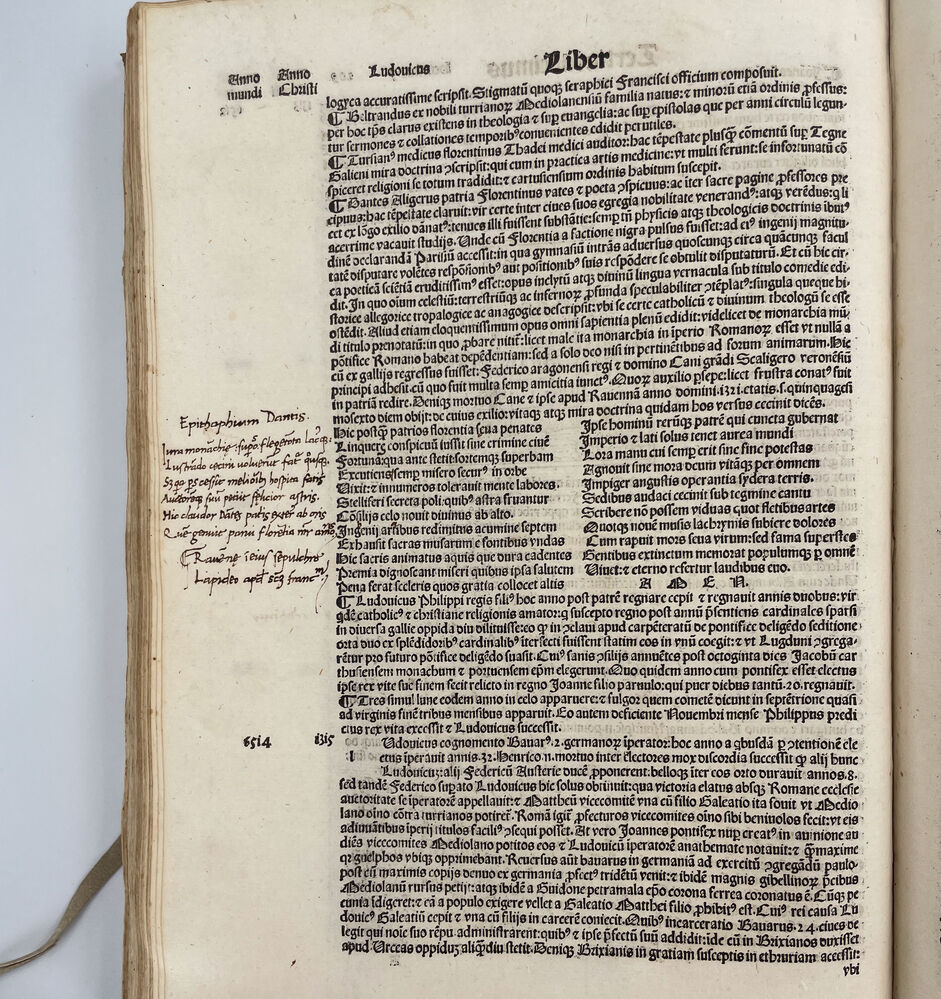 Anno Anno Ludouicus Liber
mundi Christi
logyca accuratissime scripsit. Stigmatũ quoq; seraphici Francisci officium composuit.
¶ Beltrandus ex nobili turrianoꝝ Mediolanensiũ familia natus: ⁊ minorũ etiã ordinis ꝓfessus:
per hoc tp̃s clarus existens in theologia ⁊ suꝑ euangelia: ac suꝑ epistolas que per anni circulũ legun-
tur sermones ⁊ collationes temporibꝰ conuenientes edidit perutiles.
¶ Tursianꝰ medicus florentinus Thadei medici auditor: hac tẽpestate plusꝙ̃ cõmentũ suꝑ Tegne
Galieni mira doctrina ꝯscripsit: qui cum in practica artis medicine: vt multi ferunt: se infortunatũ cõ
spiceret religioni se totum tradidit: ⁊ cartusiensium ordinis habitum suscepit.
¶ Dantes Aligerus patria Florentinus vates ⁊ poeta ꝯspicuus: ac iter sacre pagine ꝓfessores pre
cipuus: hac tẽpestate claruit: vir certe inter ciues suos egregia nobilitate venerandꝰ: atq; verẽdus: q̃ li
cet ex lõgo exilio dãnatꝰ: tenues illi fuissent substãtie: semꝑ tñ physicis atq; theologicis doctrinis ibutꝰ
acerrime vacauit studijs. Unde cũ Florentia a factione nigra pulsus fuisset: ad eiꝰ ingenij magnitu-
dinẽ declarandã Parisiũ accessit: in qua gymnasiũ intrãs aduersus quoscunq; circa quãcunq; facul
tatẽ disputare volẽtes respõsionibꝰ aut positionibꝰ suis respõdere se obtulit disputaturũ. Et cũ hic cir-
ca poeticã sciẽtiã eruditissimꝰ esset: opus inclytũ atq; diuinũ lingua vernacula sub titulo comedie edi-
dit. In quo oĩum celestiũ: terrestriũq; ac infernoꝝ ꝓfunda speculabiliter ꝯtẽplatꝰ: singula queque hi-
storice allegorice tropalogice ac anagogice descripsit: vbi se certe catholicũ ⁊ diuinum theologũ se esse
ostẽdit. Aliud etiam eloquentissimum opus omni sapientia plenũ edidit: videlicet de monarchia mũ-
di titulo prenotatũ: in quo ꝓbare nitit̃: licet male ita monarchia in iperio Romanoꝝ esset vt nullã a
põtifice Romano habeat depẽdentiam: sed a solo deo nisi in pertinẽtibus ad forum animarum. Hic
cũ ex gallijs regressus fuisset: Federico aragonensi regi ⁊ domino Cani grãdi Scaligero veronẽsiũ
principi adhesit: cũ quo fuit multa semꝑ amicitia iunctꝰ. Quoꝝ auxilio ꝑsepe: licet frustra conatꝰ fuit
in patriã redire. Deniq; mortuo Cane ⁊ ipse apud Rauennã anno domini. 1321. etatis. s. quinquagesi
mosexto diem obijt: de cuius exilio: vitaq; atq; mira doctrina quidam hos versus cecinit dicẽs.
Hic postꝙ̃ patrios florentia seua penates
Linquere conspicuũ iussit sine crimine ciuẽ
Fortuna: qua ante stetit sortemq; superbam
Excutiens semꝑ misero securꝰ in orbe
Vixit: ⁊ innumeros tolerauit mente labores.
Stelliferi secreta poli quibꝰ astra fruantur
Cõsilijs celo nouit diuinus ab alto.
Ingenij artibus redimitus acumine septem
Exhausit sacras musarum e fontibus vndas
Hic sacris animatus aquis que dura cadentes
Premia dignoscant miseri quibus ipsa salutem
Pena ferat sceleris quos gratia collocet altis
Ipse hominũ rerũq; patrẽ qui cuncta gubernat
Imperio ⁊ lati solus tenet aurea mundi
Lora manu cui semꝑ erit sine fine potestas
Agnouit sine mora deum vitãq; per omnem
Impiger angustis operantia sydera terris.
Sedibus audaci cecinit sub tegmine cantu
Scribere nõ possem viduas quot fletibus artes
Quotq; nouẽ musis lachrymis subiere dolores
Cum rapuit mors seua virum: sed fama superstes
Gentibus extinctum memorat populumq; ꝑ omnẽ
Viuet: ⁊ eterno refertur laudibus euo.
A M E N.
Epithaphium Dantis.
Iura monarchie: suꝑos flegetonta lacusq;
Lustrãdo cecini voluerunt fata quousq;
Sꝫ qꝛ ps cessit meliorib⁹ hospita castris
Auctoreq; suũ petiit felicior astris.
Hic claudor Dãtes patrijs exter⁹ ab oris
Quẽ genuit parui florẽtia mr̃ amoris
¶ Rauenne ĩ eius sepulchro
Lapideo apd̃ sctũ franc̃.
¶ Ludouicus Philippi regis filiꝰ hoc anno post patrẽ regnare cepit ⁊ regnauit annis duobus: vir
qdẽ catholicꝰ ⁊ christiane religionis amator: q̃ suscepto regno post annũ p̃sentiens cardinales sparsi
in diuersa gallie oppida diu dilituisse: eo ꝙ in ꝯclaui apud carpẽteratũ de pontifice deligẽdo seditione
orta duo ex splẽdidoribꝰ cardinalibꝰ iter secti fuissent statim eos in vnũ coegit: ⁊ vt Lugduni ꝯgrega-
rẽtur pro futuro põtifice deligẽdo suasit. Cuiꝰ sanis ꝯsilijs annuẽtes post octoginta dies Jacobũ car
thusiensem monachum ⁊ portuensem ep̃m elegerunt. Quo quidem anno cum pontifex esset electus
ipse rex vite sue finem fecit relicto in regno Joanne filio paruulo: qui puer diebus tantũ. 20. regnauit.
¶ Tres simul lune eodem anno in celo apparuere: ⁊ fulgor quem cometẽ dicunt in septẽtrione quasi
ad virginis finẽ tribus mensibus apparuit. Eo autem deficiente Nouembri mense Philippus predi
ctus rex vita excessit ⁊ Ludouicus successit.
6514 1315 Udouicus cognomento Bauarꝰ. 2. germanoꝝ iperator: hoc anno a qbusdã ꝑ ꝯtentionẽ ele
l ctus iperauit annis. 32. Henrico. n. mortuo inter electores mox discordia successit ꝙ alij hunc
Ludouicũ: alij Federicũ Austerie ducẽ ꝓponerent: belloq; iter eos orto durauit annos. 8.
sed tandẽ Federico suꝑato Ludouicus hic solus obtinuit: qua victoria elatus absq; Romane ecclesie
auctoritate se iperatorẽ appellauit: ⁊ Mattheũ vicecomitẽ vna cũ filio Galeatio ita fouit vt Medio
lano oĩno cõtra turrianos potiret̃. Romã igit̃ ꝓfecturos vicecomites oĩno sibi beniuolos fecit: vt eis
adiuuãtibus iperij titulos faciliꝰ ꝯsequi posset. At vero Joannes pontifex nuꝑ creatꝰ in auinione au
diẽs vicecomites Mediolano potitos eos ⁊ Ludouicũ iperatorẽ anathemate notauit: ⁊ ꝙ̃ maxime
qꝛ guelphos vbiq; opprimebant. Reuersus aũt bauarus in germaniã ad exercitũ ꝯgregãdũ paulo-
post cũ maximis copijs denuo ex germania ꝓfectꝰ tridẽtũ venit: ⁊ ibidẽ magnis gibellinoꝝ p̃cibus
Mediolanũ rursus petijt: atq; ibidẽ a Guidone petramala ep̃o corona ferrea coronatus ẽ. Cũq; pe
cunia idigeret: ⁊ eã a populo exigere vellet a Galeatio Matthei filio ꝓhibitꝰ est. Cuiꝰ rei causa Lu
douicꝰ Galeatiũ cepit ⁊ vna cũ filijs in carcerẽ coniecit. Quibꝰ incarceratio Bauarus. 24. ciues de
legit qui noĩe suo rẽpu. administrarent: quibꝰ ⁊ ipse p̃fectũ suũ addidit: ĩde cũ in Brixianos duxisset
apud Urceas oppidũ aliq̃diu stetit. Deniq; Brixianis in gratiam susceptis in ethruriam accessit:
vbi